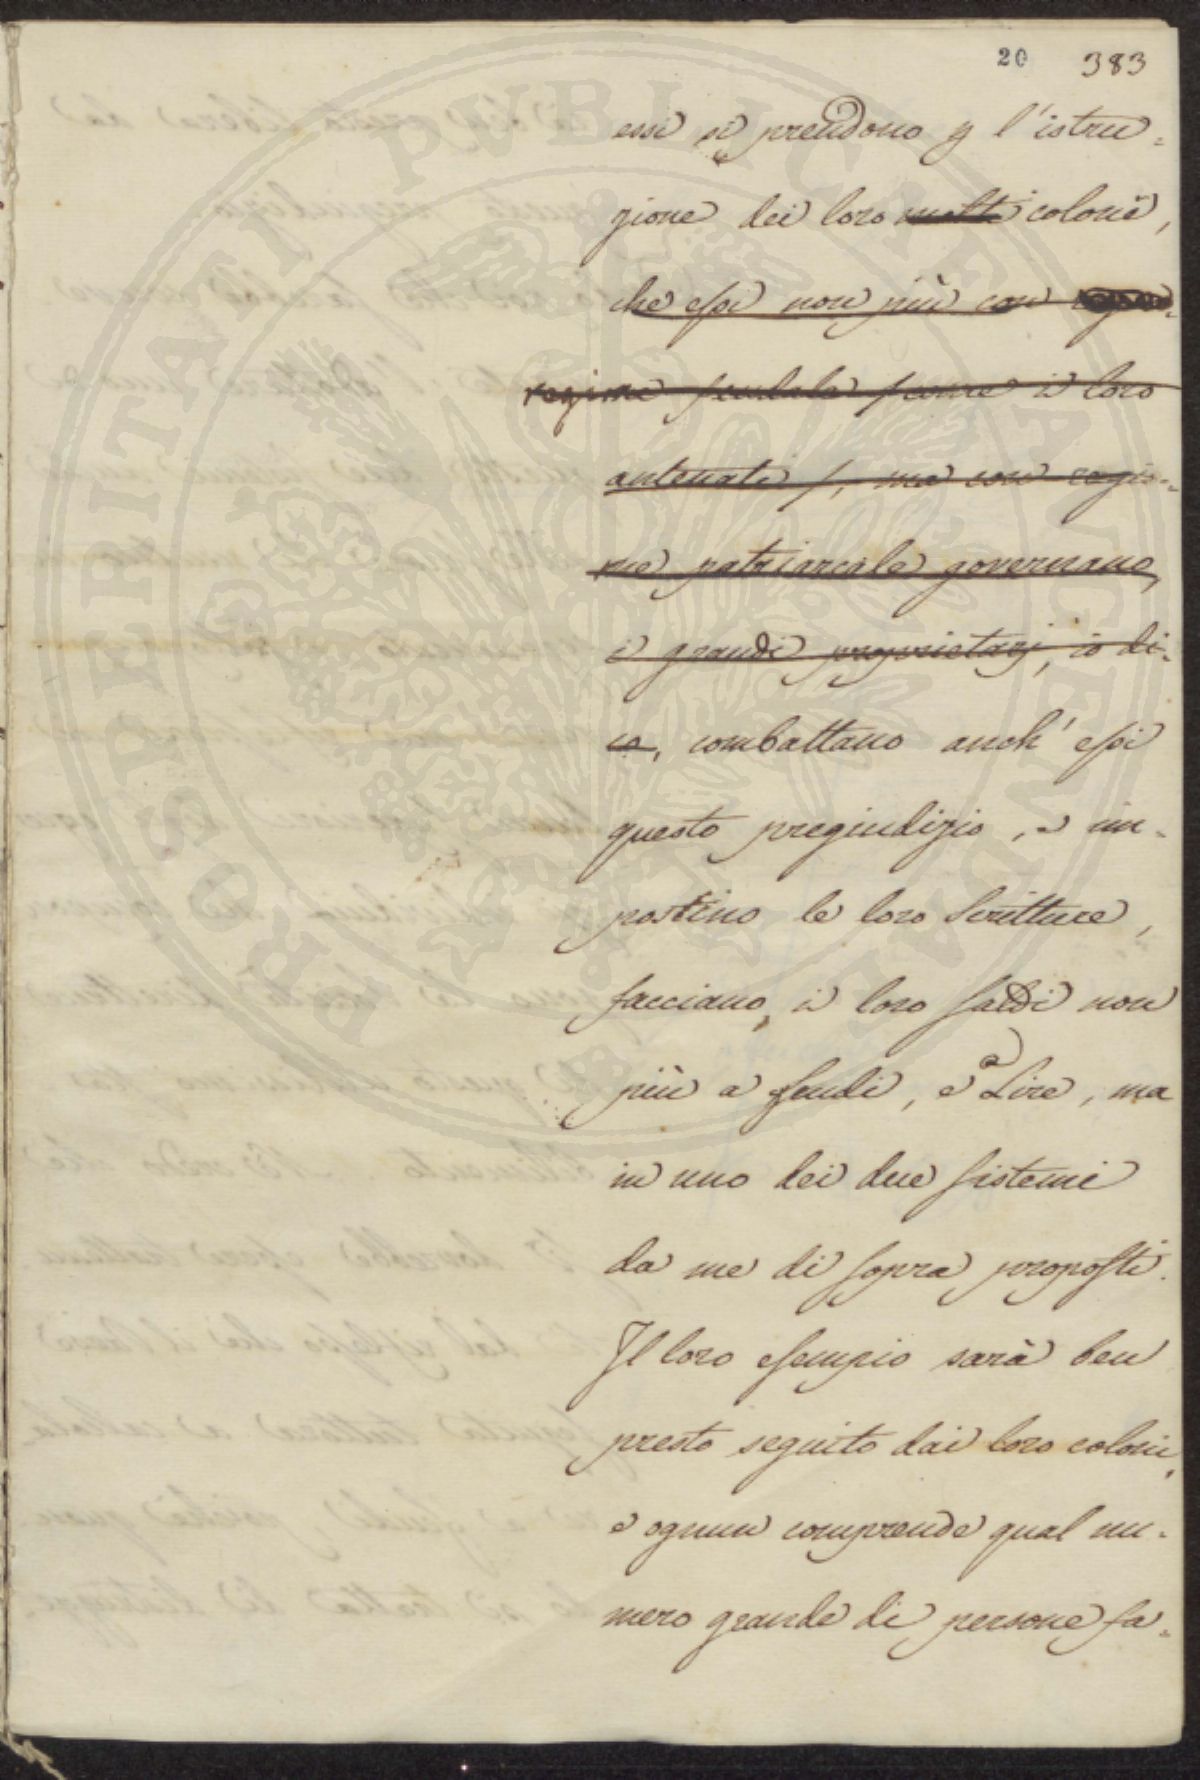 20 383
essi si prendono p l'istru=
zione dei loro molti coloni,
che essi non più con
regime feudale come i loro
antenati, ma con regi=
me patriarcale governano,
i grandi proprietarj, io di=
co, combattano anch' essi
questo pregiudizio, e im=
postino le loro Scritture,
facciano, i loro saldi non
più a scudi, e a Lire, ma
in uno dei due sistemi
da me di sopra proposti.
Il loro esempio sarà ben
presto seguito dai loro coloni,
e ognun comprende qual nu=
mero grande di persone fa=
PROSPERITATI PVBLICAE AVGENDAE